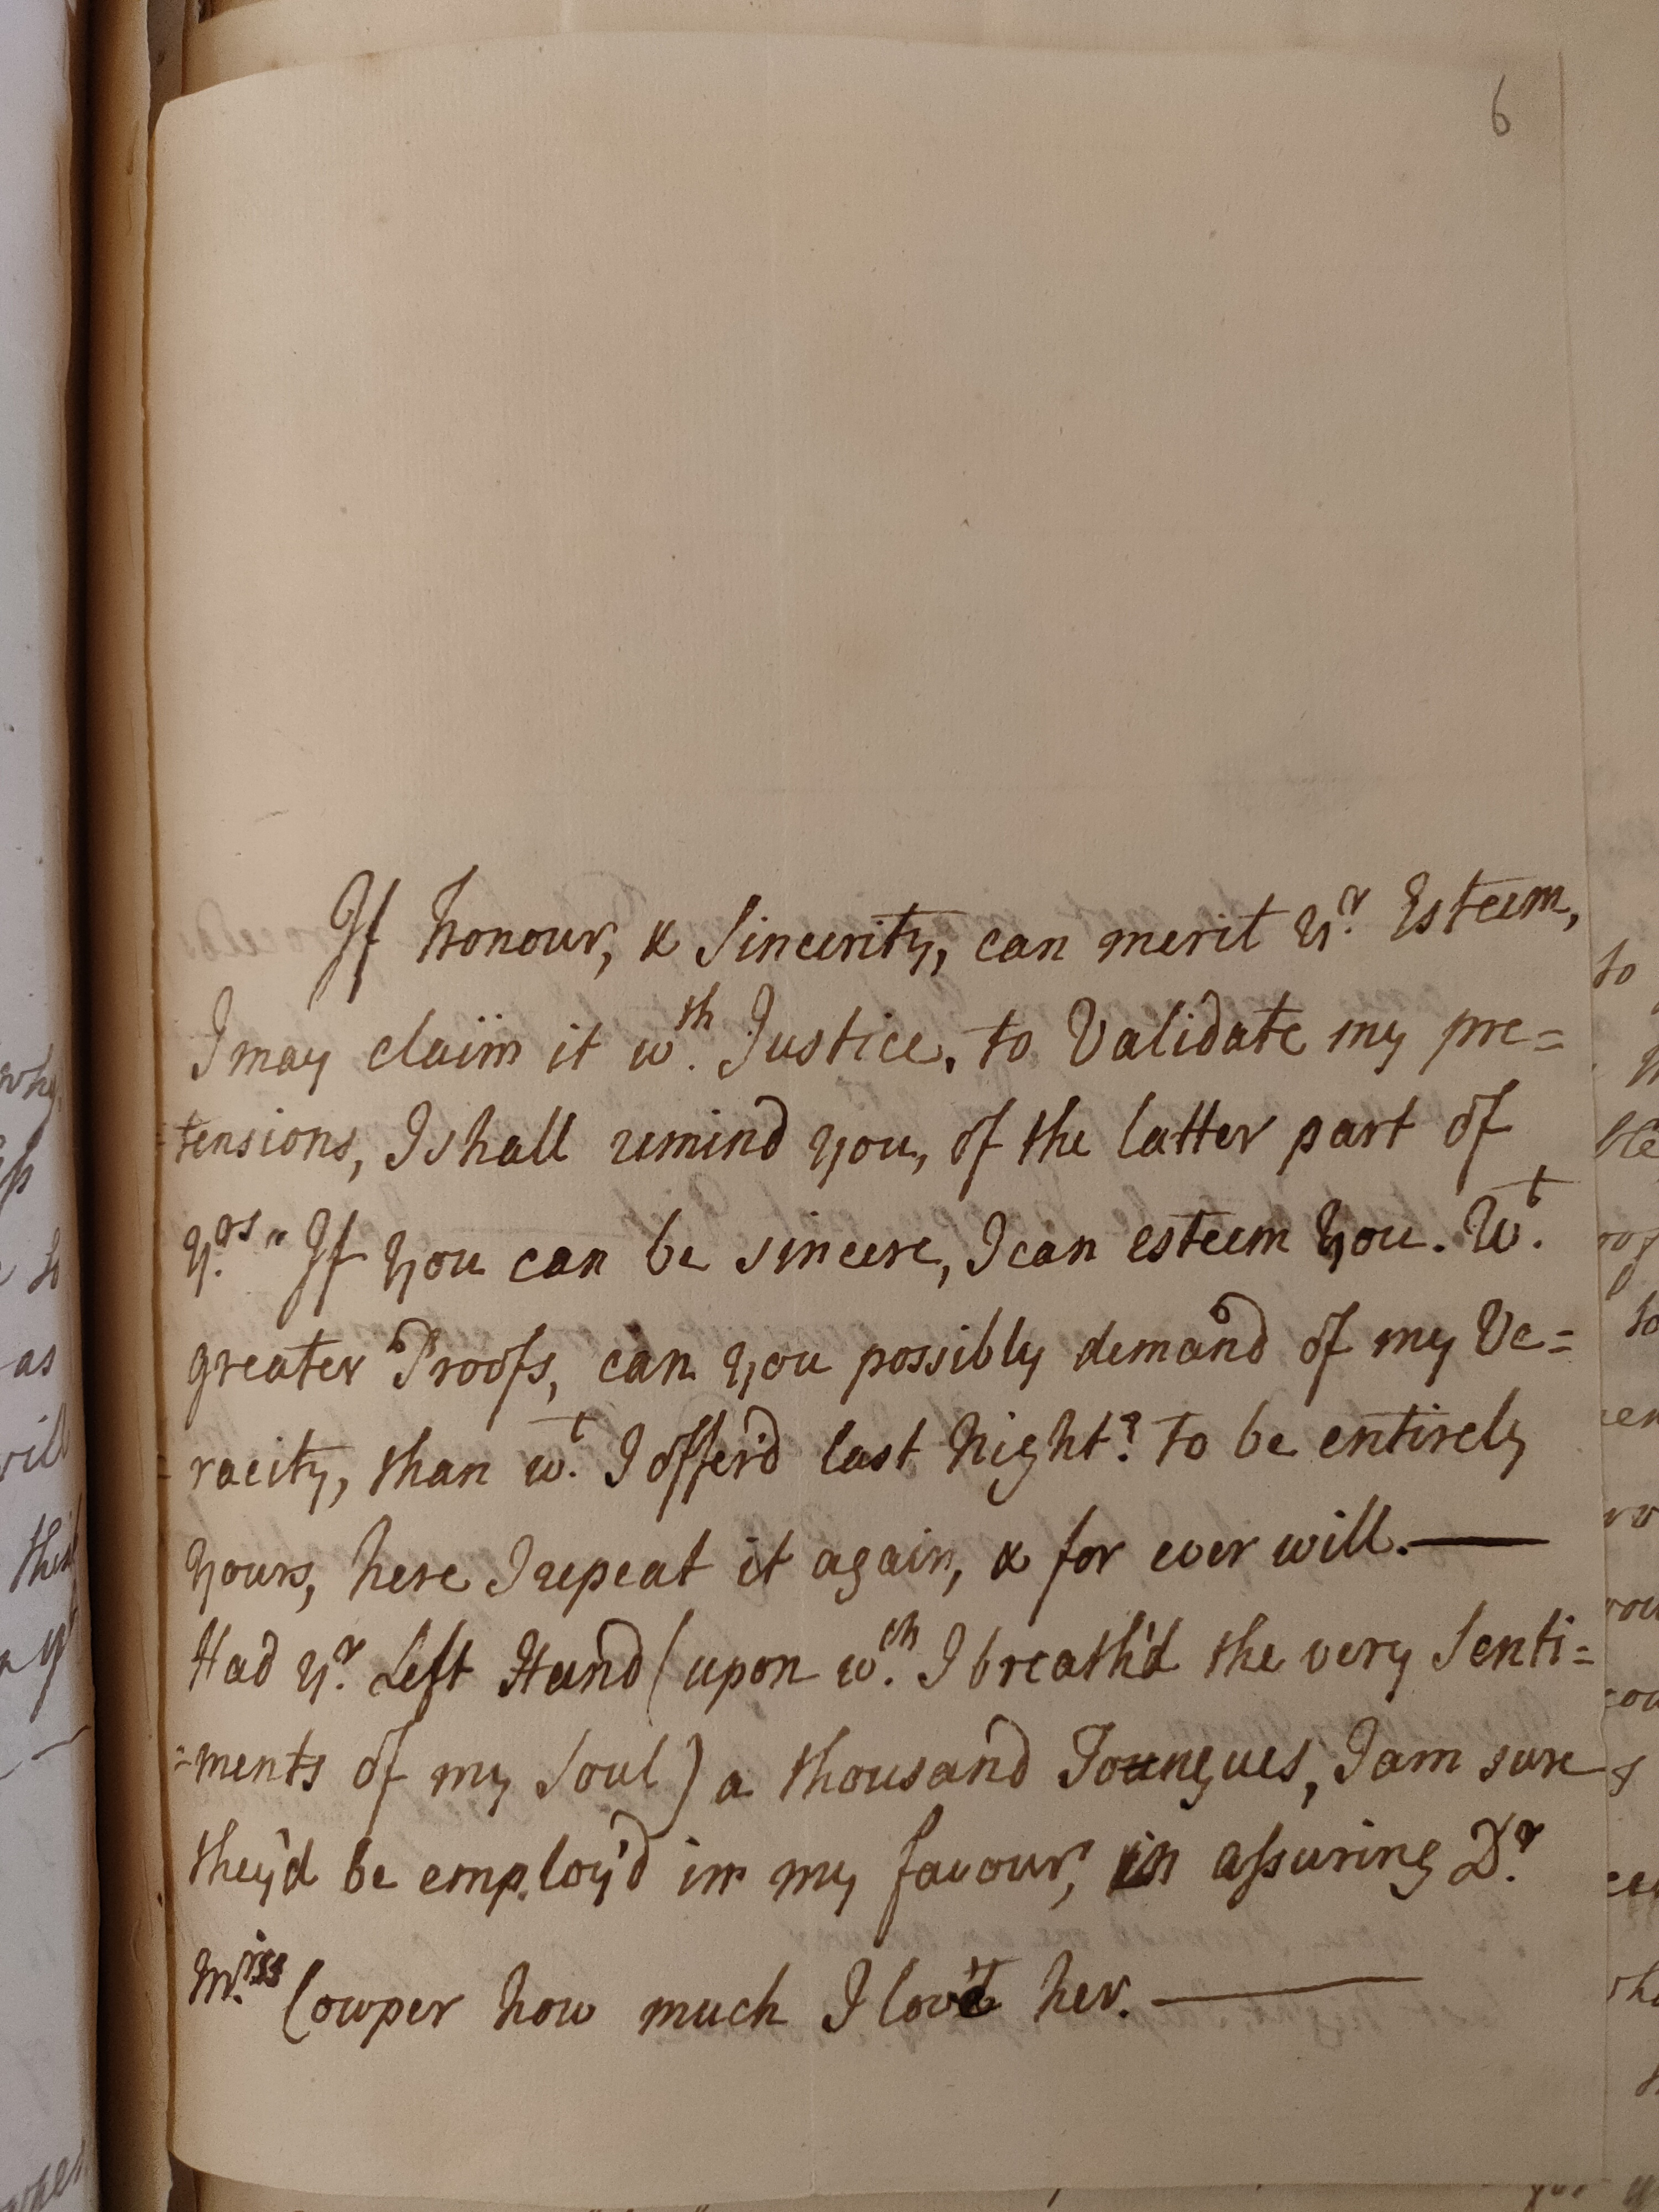 6
If honour, & Sincerity, can merit yr. Esteem,
I may claim it wth. Justice, to Validate my pre=
=tensions, I shall remind you, of the latter part of
yrs. " If you can be sincere, I can esteem you. Wt.
greater Proofs, can you possibly demand of my Ve=
=racity, than wt. I offer'd last Night? to be entirely
yours, here I repeat it again, & for ever will.—
Had yr. Left Hand (upon wch. I breath'd the very Senti=
=ments of my Soul) a thousand Toungues, I am sure
they'd be employ'd in my favour, in assuring Dr.
Miss Cowper how much I love her. —